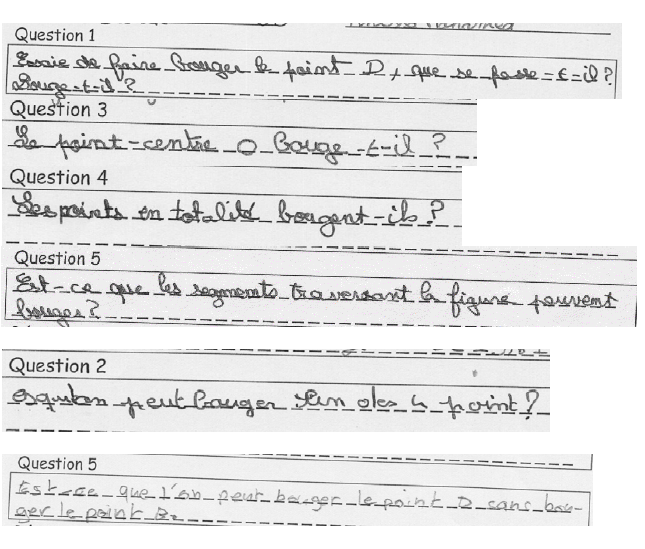 Question 1
Essaie de faire bouger le point D, que se passe-t-il?
Bouge-t-il?
Question 3
Le point-centre O bouge-t-il ?
Question 4
Les points en totalité bougent-ils?
Question 5
Est-ce que les segments traversant la figure peuvent
bouger?
Question 2
esquon peut bouger l'un des 4 point?
Question 5
Est-ce que l'on peut bouger le point D sans bou-
ger le point B.